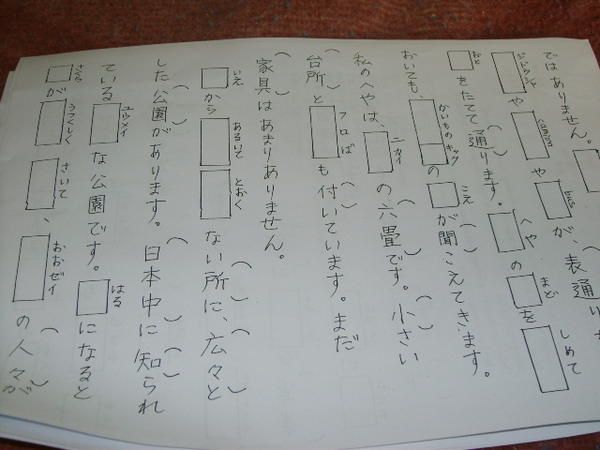 ではありません。
ジドウシャ や や が、表通り
おと をたてて通ります。 へや の まど を しめて
おいても、 かいものキャク の こえ が聞こえてきます。
私のへやは、 ニカイ の六畳です。小さい
台所と フロば も付いています。まだ
家具はあまりありません。
いえ から あるいて とおく ない所に、広々と
した公園があります。日本中に知られ
ている ユウメイ な公園です。 はる になると
さくら が うつくしく さいて 、 おおゼイ の人々が